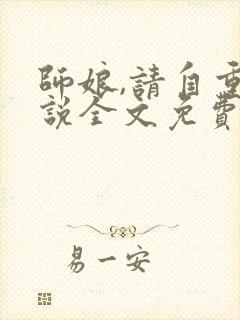 師娘,請自重
説全文免費
易一安